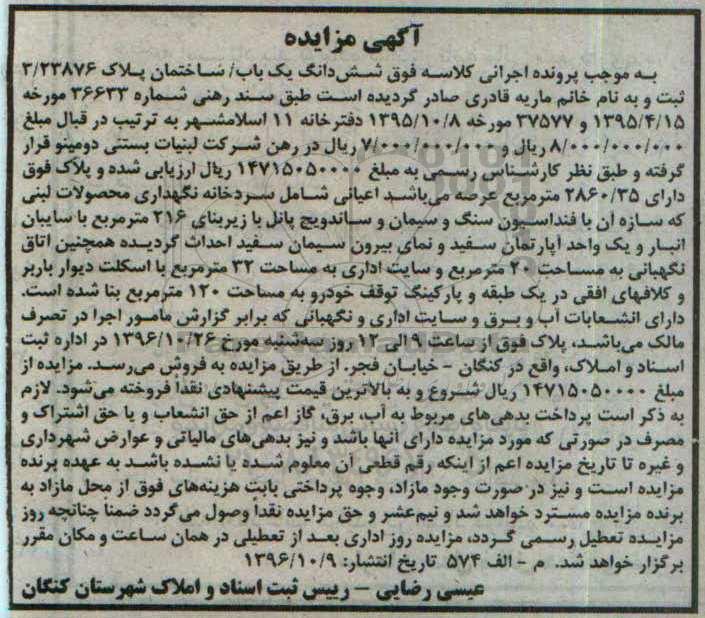 آگهی مزایده
به موجب پرونده اجرائی کلاسه فوق شش‌دانگ یک باب/ ساختمان پلاک ۳/۲۳۸۷۶
ثبت و به نام خانم ماریه قادری صادر گردیده است طبق سند رهنی شماره ۳۶۶۳۳ مورخه
۱۳۹۵/۴/۱۵ و ۳۷۵۷۷ مورخه ۱۳۹۵/۱۰/۸ دفترخانه ۱۱ اسلامشهر به ترتیب در قبال مبلغ
۸/۰۰۰/۰۰۰/۰۰۰ ریال و ۷/۰۰۰/۰۰۰/۰۰۰ ریال در رهن شرکت لبنیات بستنی دومینو قرار
گرفته و طبق نظر کارشناس رسمی به مبلغ ۱۴۷۱۵۰۵۰۰۰۰ ریال ارزیابی شده و پلاک فوق
دارای ۲۸۶۰/۳۵ مترمربع عرصه می‌باشد اعیانی شامل سردخانه نگهداری محصولات لبنی
که سازه آن با فنداسیون سنگ و سیمان و ساندویچ پانل با زیربنای ۲۱۶ مترمربع با سایبان
انبار و یک واحد آپارتمان سفید و نمای بیرون سیمان سفید احداث گردیده همچنین اتاق
نگهبانی به مساحت ۲۰ مترمربع و سایت اداری به مساحت ۳۲ مترمربع با اسکلت دیوار باربر
و کلافهای افقی در یک طبقه و پارکینگ توقف خودرو به مساحت ۱۲۰ مترمربع بنا شده است.
دارای انشعابات آب و برق و سایت اداری و نگهبانی که برابر گزارش مامور اجرا در تصرف
مالک می‌باشد، پلاک فوق از ساعت ۹ الی ۱۲ روز سه‌شنبه مورخ ۱۳۹۶/۱۰/۲۶ در اداره ثبت
اسناد و املاک، واقع در کنگان - خیابان فجر. از طریق مزایده به فروش می‌رسد. مزایده از
مبلغ ۱۴۷۱۵۰۵۰۰۰۰ ریال شروع و به بالاترین قیمت پیشنهادی نقداً فروخته می‌شود. لازم
به ذکر است پرداخت بدهی‌های مربوط به آب، برق، گاز اعم از حق انشعاب و یا حق اشتراک و
مصرف در صورتی که مورد مزایده دارای آنها باشد و نیز بدهی‌های مالیاتی و عوارض شهرداری
و غیره تا تاریخ مزایده اعم از اینکه رقم قطعی آن معلوم شده یا نشده باشد به عهده برنده
مزایده است و نیز در صورت وجود مازاد، وجوه پرداختی بابت هزینه‌های فوق از محل مازاد به
برنده مزایده مسترد خواهد شد و نیم‌عشر و حق مزایده نقداً وصول می‌گردد ضمناً چنانچه روز
مزایده تعطیل رسمی گردد، مزایده روز اداری بعد از تعطیلی در همان ساعت و مکان مقرر
برگزار خواهد شد. م - الف ۵۷۴ تاریخ انتشار: ۱۳۹۶/۱۰/۹
عیسی رضایی – رییس ثبت اسناد و املاک شهرستان کنگان